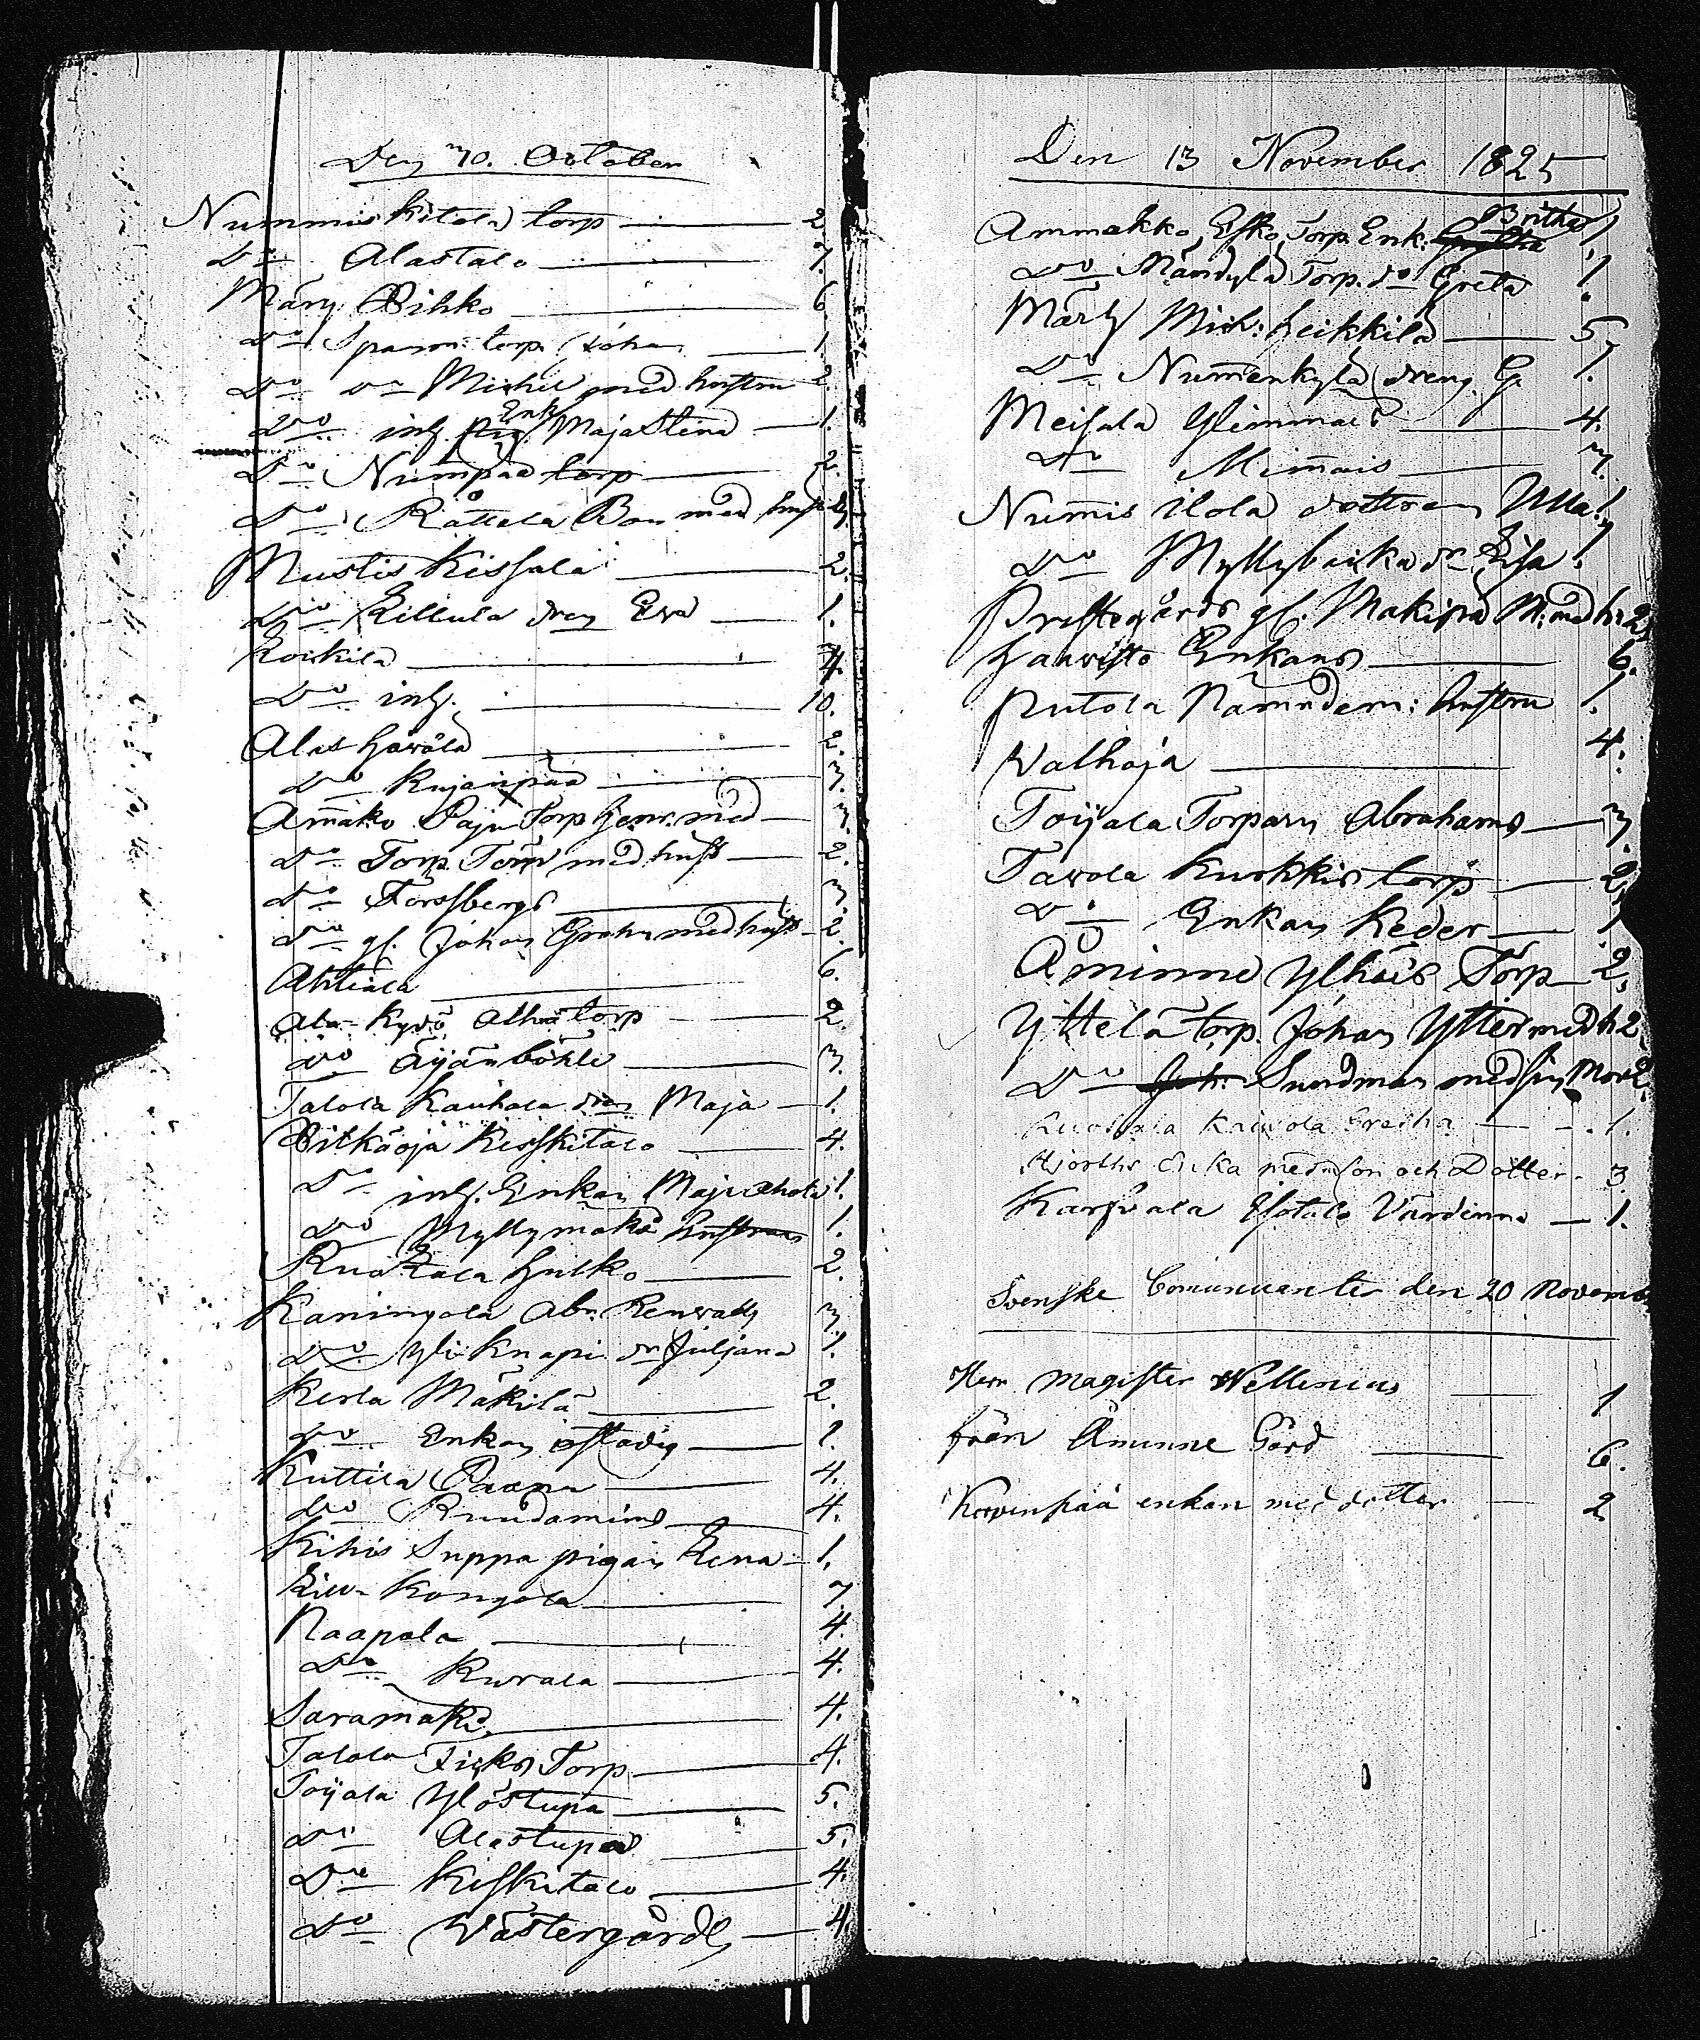 Den 30. October
Nummis Kitola torp — 2
Do Alastalo — 7.
Märy Pihko — 6
Do Sparrn: torp. Johan — 1.
Do do Michel med hustru 2.
Do inh. Enk. Maja Stina — 1.
Do Numpää torp — 2.
Do Råttala Bon med hust
Mustis Kissala — 2.
Do Killula dreng Ewa — 1.
Koikila — 4.
Do inh. — 10.
Alas Häwälä — 2.
Do Kujanpää — 3.
Ammäko Paju Torp Henr. med — 3.
Do Torp. Törn med hust — 2.
Do Forssbergs — 3.
Do gl. Johan Grohn med hust — 2.
Ahtiala — 6.
Ala-Kyrö Alho torp — 2.
Do Äijänböhle — 3.
Talola Kauhala dreng Maja — 1.
Pitkäoja Keskitalo — 4.
Do inh. Enkan Majuahola 1.
Do Myllymäki hustrun 1.
Ruotzala Hulko — 2.
Kaningola Abr. Renwall 3.
Do Yli-Knapi dr Juljana 1.
Kerla Mäkilä — 2.
Do Enkan ostadig — 1.
Kuttila Paapu — 4.
Do Rundamins — 4.
Kihis Suppa pigan Lena — 1.
Liu-Kongola — 7.
Naapala — 4.
Do Kurala — 4.
Saramäki — 4.
Talola Ficks Torp — 4.
Toijala Ylöstupa — 5.
Do Alastupa — 5.
Do Keskitalo — 4.
Do Västergård — 4.
Den 13 November 1825
Ammakko Esko Torp. Enk: Britha 1
Do Mändylä Torp. do Greta 1.
Märy Mich: Heikkilä — 5.
Do Nummenkylä dreng G. 1.
Meisala Ylimmais — 4.
Do Mimais — 3.
Nummis Ilola dottren Ulla 1.
Do Myllybacka dr Lisa 1.
Prestegårds gl. Makipä M: med h: 2.
Hauvisto Enkans — 6.
Nutola Nämndem: hustru 1.
Walhoja — 4.
Toijala Torparn Abrahams — 3.
Tavola Kurkkis torp — 2.
Do Enkan Keder — 1.
Åminne Ylhäis Torp — 2.
Yttelä torp. Johan Ytter med h 2
Do Joh: Sundman med sin Mor 2.
Kaivola Gretha — 1.
Hjorths Enka med son och Dotter. 3
Karviala Ylötalo Värdinna — 1.
Svenske Comunicanter den 20 Novemb
Herr Magister Wellenius — 1
från Åminne Gård — 6.
Korvenpää enkan med dotter — 2